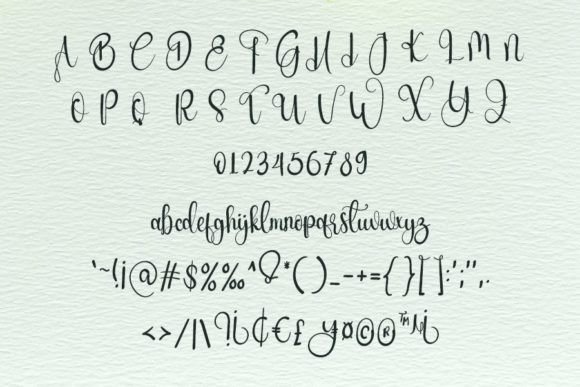 A B C D E F G H I J K L M N
O P Q R S T U V W X Y Z
0123456789
abcdefghijklmnopqrstuvwxyz
`~!¡@#$%‰^&*()_-+={}[]:';",.
<>/|\?¿¢€£¥¤©®™